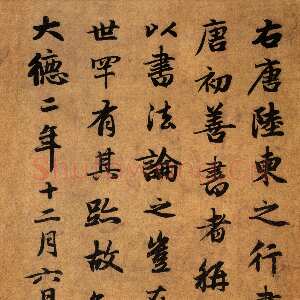 右唐陸柬之行書
唐初善書者稱
以書法論之豈在
世罕有其跡故
大德二年十二月六日